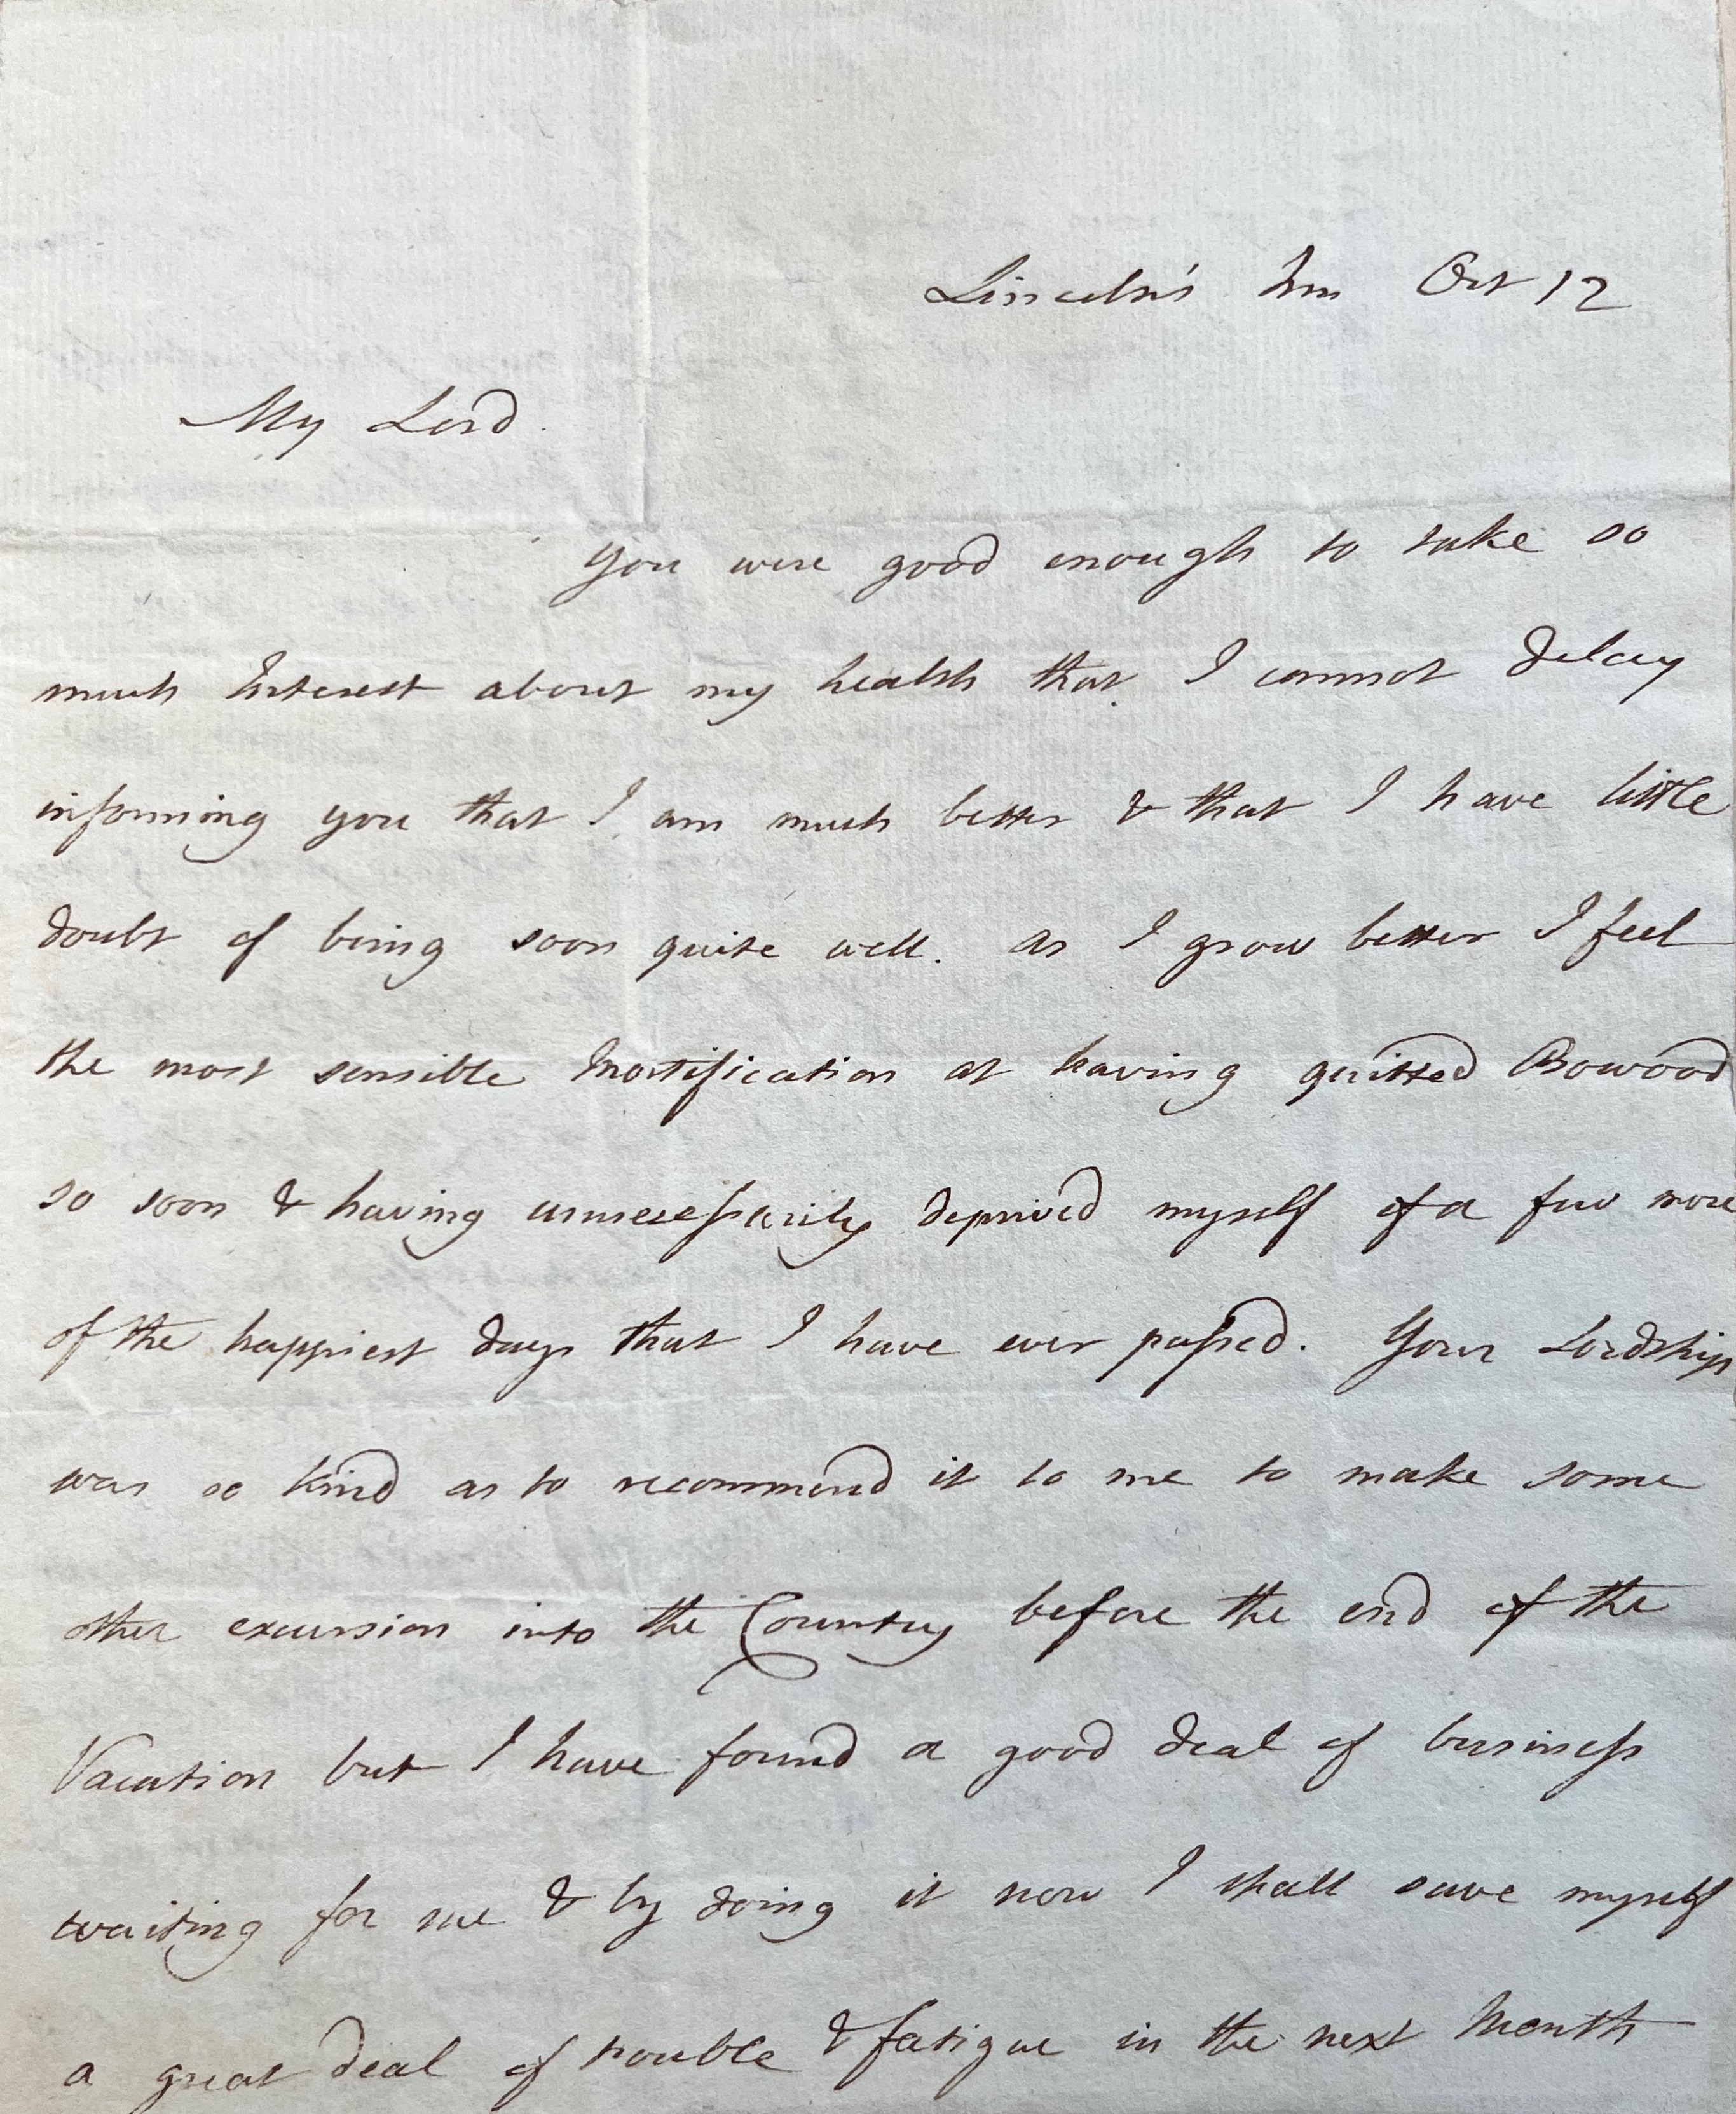 Lincoln's Inn Oct 12
My Lord.
You were good enough to take so
much Interest about my health that I cannot delay
informing you that I am much better & that I have little
doubt of being soon quite well. as I grow better I feel
the most sensible Mortification at having quitted Bowood
so soon & having unnecessarily deprived myself of a few more
of the happiest days that I have ever passed. Your Lordship
was so kind as to recommend it to me to make some
other excursion into the Country before the end of the
Vacation but I have found a good deal of business
waiting for me & by doing it now I shall save myself
a great deal of trouble & fatigue in the next Month